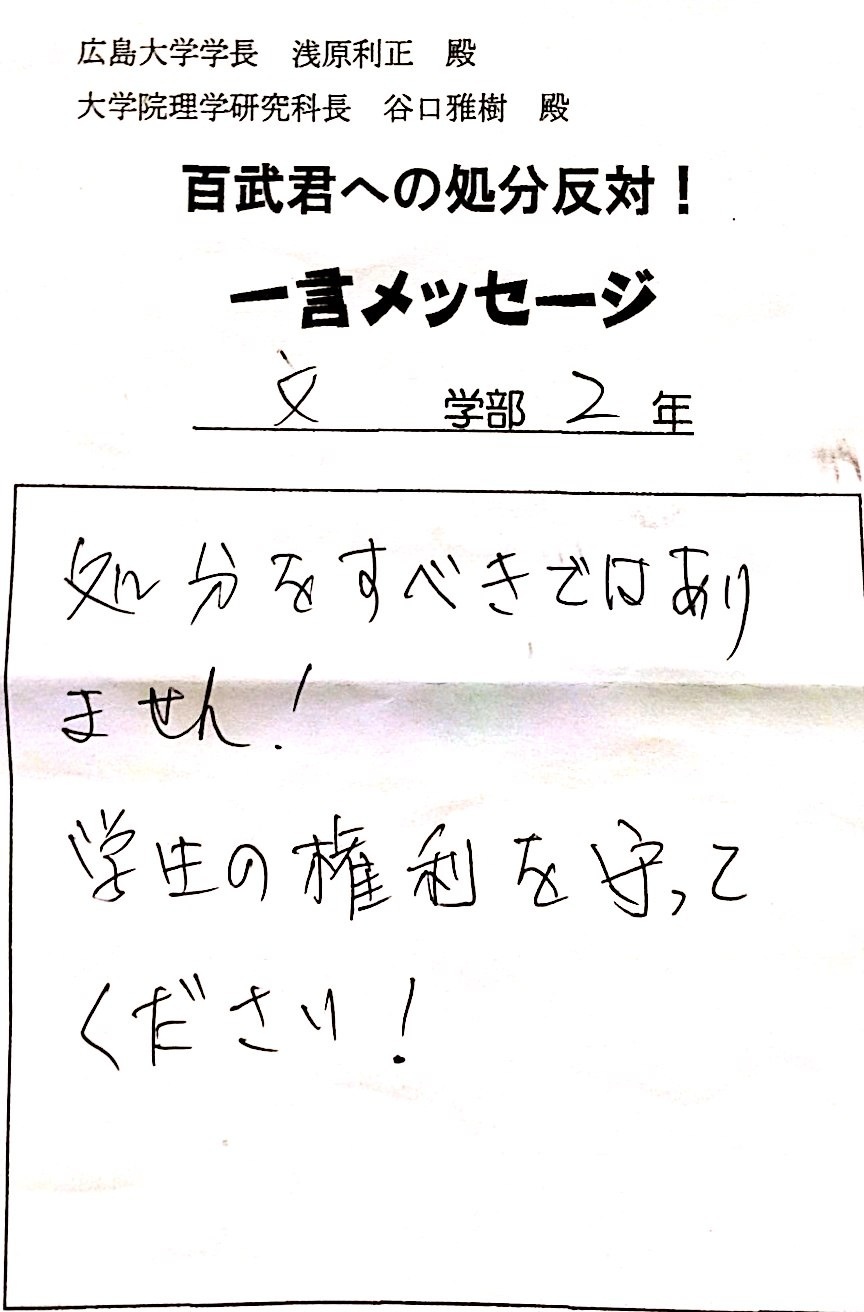 広島大学学長　浅原利正　殿
大学院理学研究科長　谷口雅樹　殿
百武君への処分反対！
一言メッセージ
文 学部 2 年
処分をすべきではあり
ません！
学生の権利を守って
ください！